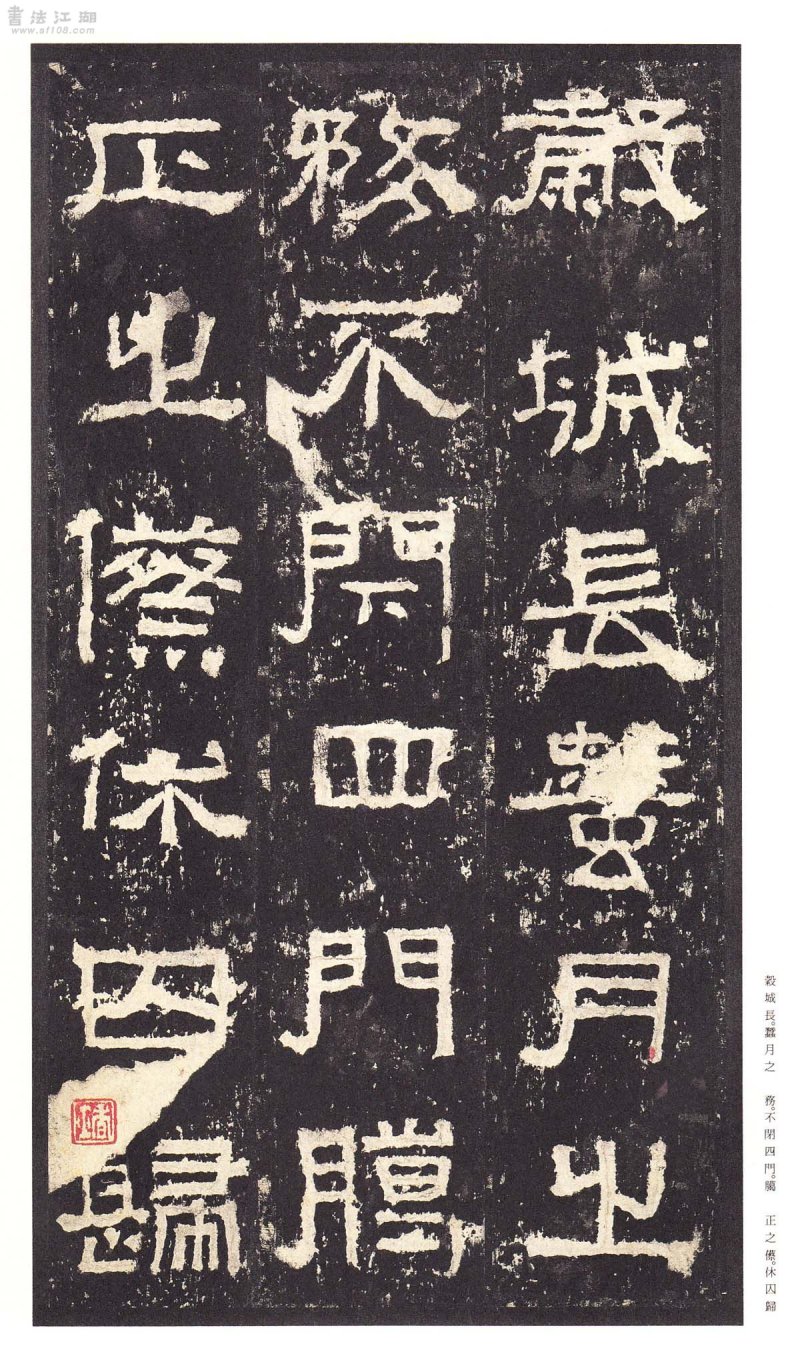 書法江湖
www.af108.com
穀城長蠶月之
務不閉四門臈
正之傺休囚歸
穀城長。蠶月之　務。不閉四門。臈　正之傺。休囚歸